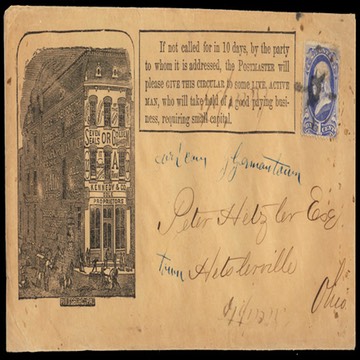 If not called for in 10 days, by the party
to whom it is addressed, the POSTMASTER will
please GIVE THIS CIRCULAR to some LIVE, ACTIVE
MAN, who will take hold of a good paying busi-
ness, requiring small capital.
SEVEN
SEALS OR GOLDEN
KENNEDY & CO
SOLE
PROPRIETORS
Germantown
Peter Hetzler Esq
town Hetslerville
Ohio